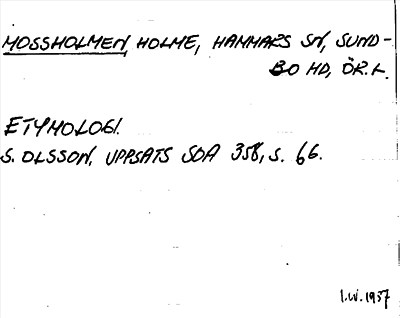 MOSSHOLMEN, HOLME, HAMMARS SN, SUND-
BO HD, ÖR.L.
ETYMOLOGI.
S. OLSSON, UPPSATS SOA 358, S. 66.
I.W. 1937